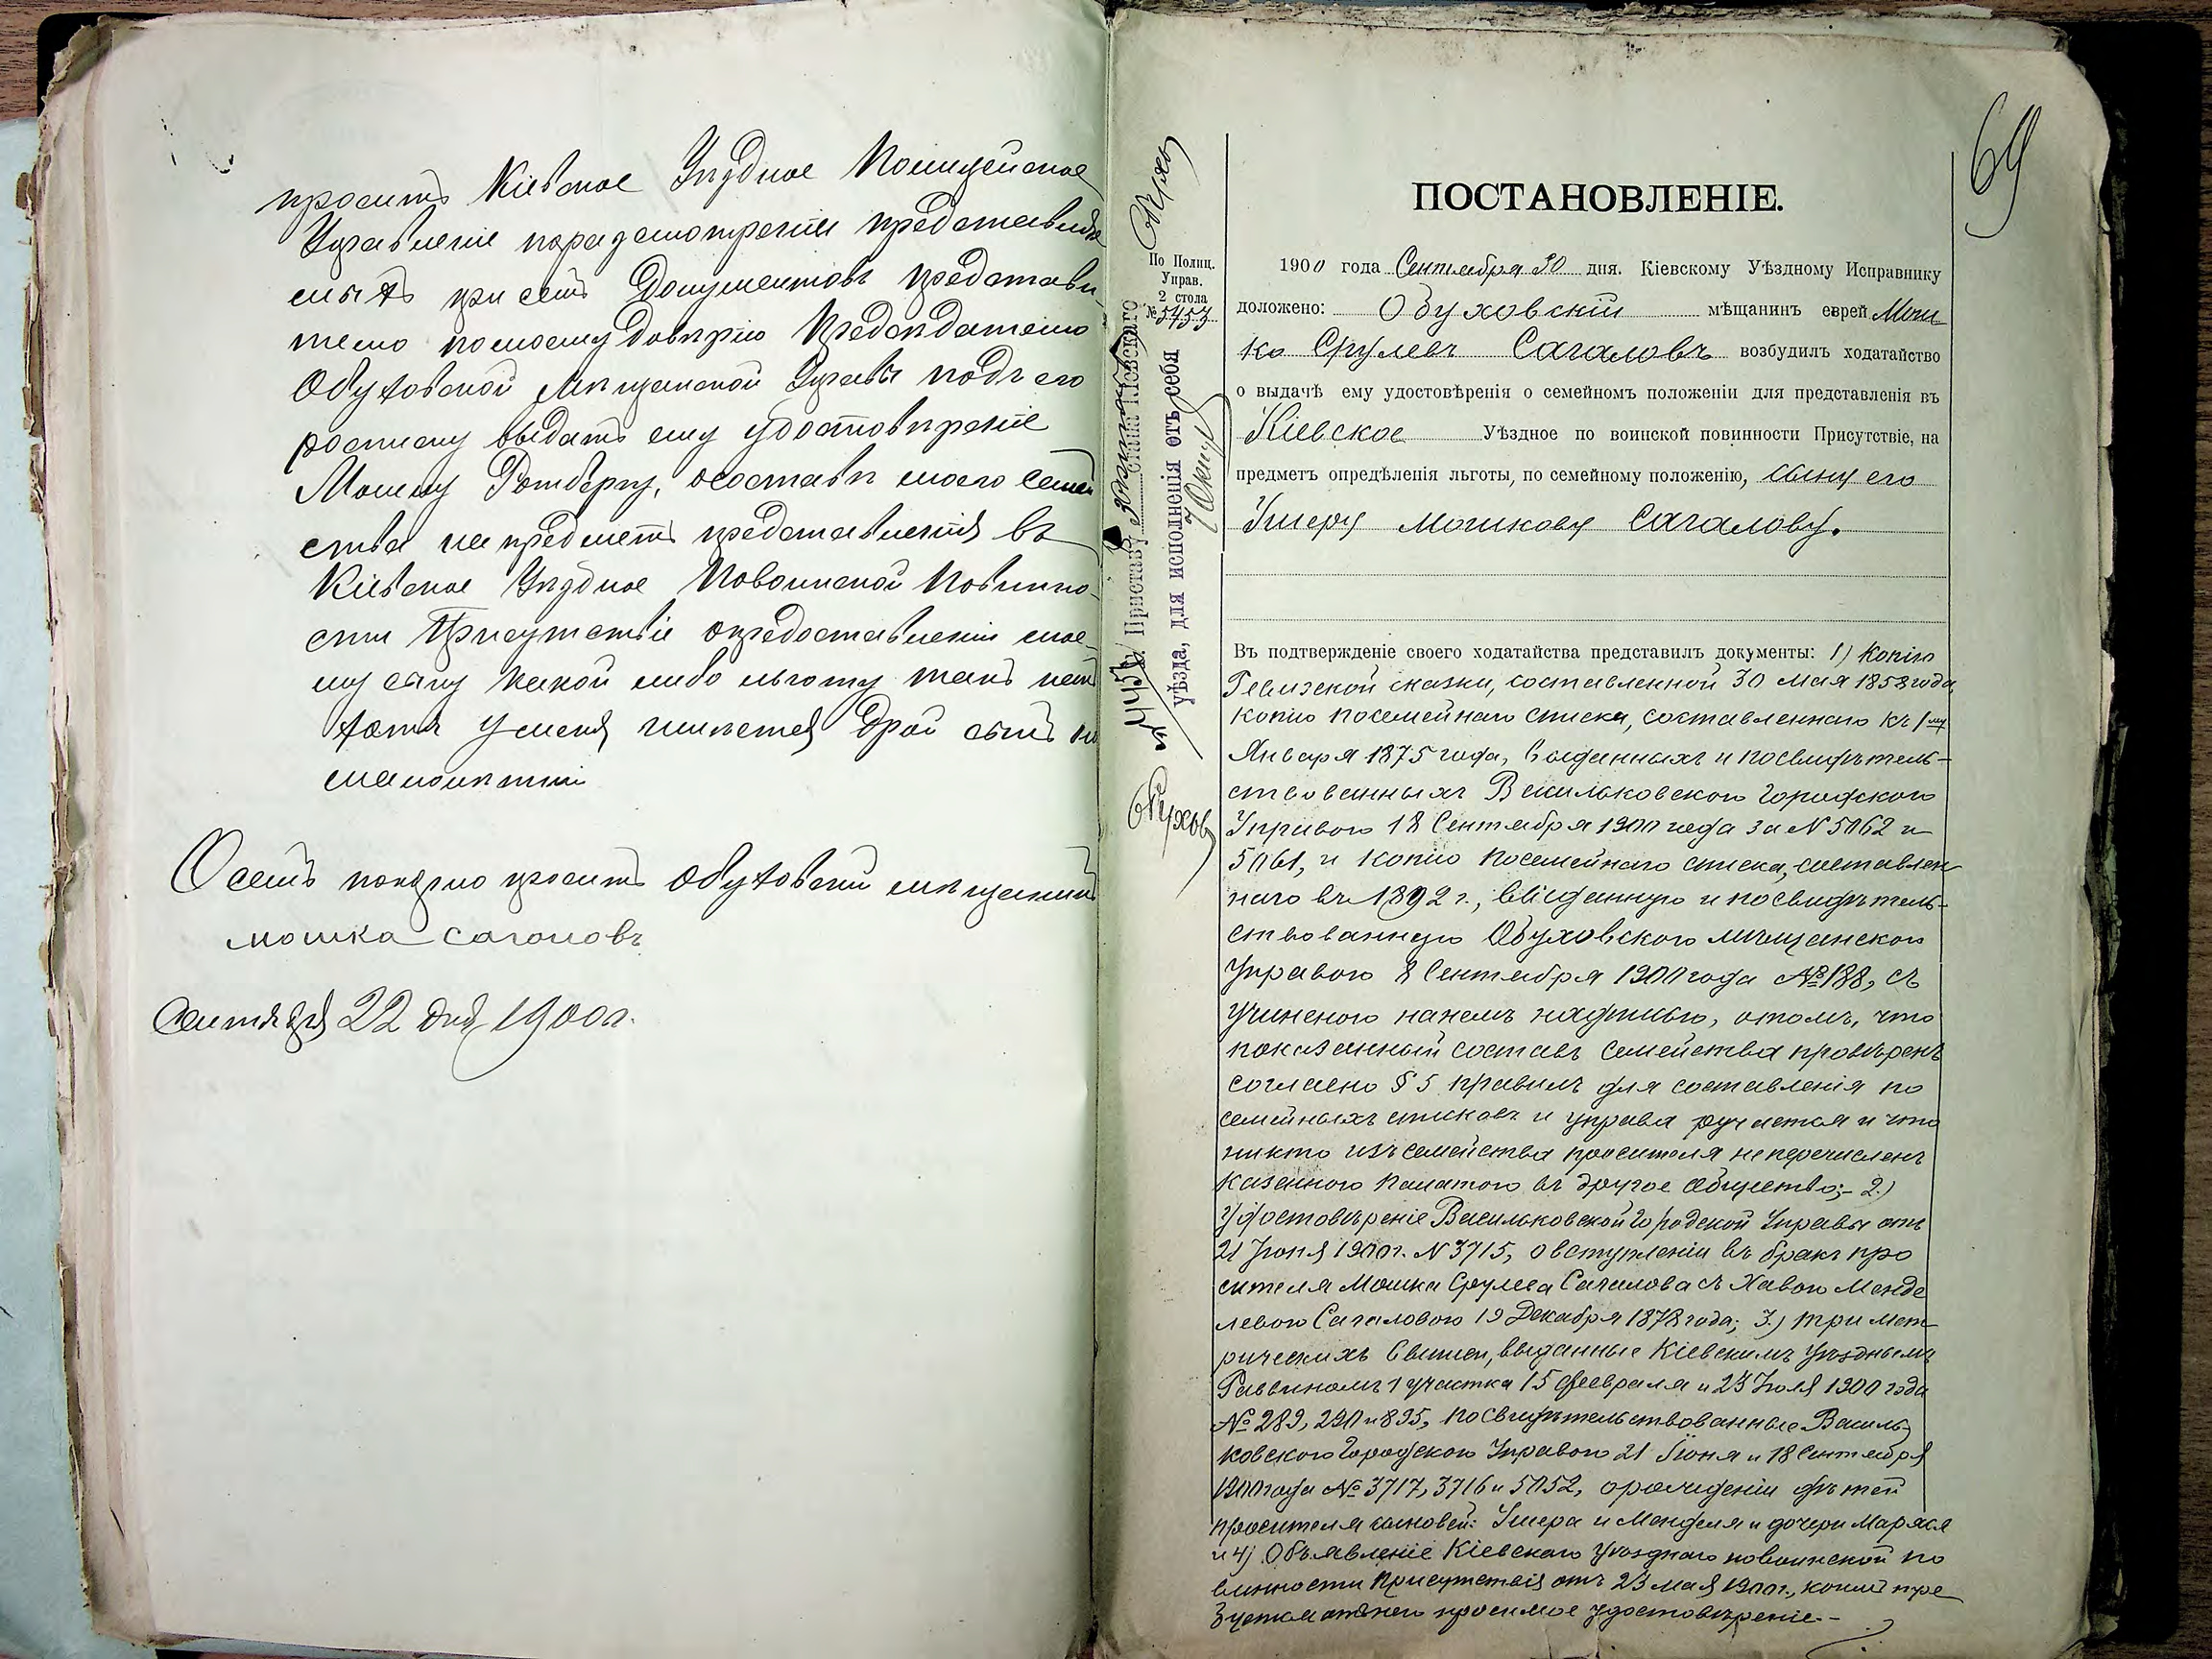 просить Кіевское Уѣздное Полицейское
Управленіе поразсмотреніи представлен
ныхъ при семъ документовъ представи-
телю помоему довѣрію Предсѣдателю
Обуховской мѣщанской Управы подъ его
росписку выдать ему удостовѣреніе
Мошку Ротберу, осоставѣ моего семей
ства на предметъ представленія въ
Кіевское Уѣздное Повоинской Повинно-
сти Присутствіе опредоставленіи мое-
му сыну какой либо льготу такъ какъ
хотя у меня имѣется другой сынъ но
малолѣтній
О семъ покорно просить Обуховскій мѣщанинъ
мошка сагаловъ
Сентября 22 дня 1900 г.
69
ПОСТАНОВЛЕНІЕ.
По Полиц.
Управ.
2 стола
№ 5453
Приставу стана Кіевскаго
уѣзда, для исполненія отъ себя
7 Окт
Обухов
1900 года Сентября 30 дня. Кіевскому Уѣздному Исправнику
доложено: Обуховскій мѣщанинъ еврей Мош
ко Срулевъ Сагаловъ возбудилъ ходатайство
о выдачѣ ему удостовѣренія о семейномъ положеніи для представленія въ
Кіевское Уѣздное по воинской повинности Присутствіе, на
предметъ опредѣленія льготы, по семейному положенію, сыну его
Ушеру Мошкову Сагалову.
Въ подтвержденіе своего ходатайства представилъ документы: 1) Копію
Ревизской сказки, составленной 30 мая 1858 года,
копію посемейнаго списка, составленнаго къ 1му
Января 1875 года, выданныхъ и посвидѣтель-
ствованныхъ Васильковскою Городскою
Управою 18 Сентября 1900 года за N 5062 и
5061, и копію посемейнаго списка, составлен
наго въ 1892 г., выданную и посвидѣтель-
ствованную Обуховскою мѣщанскою
Управою 8 Сентября 1900 года №188, съ
учиненою нанемъ надписью, отомъ, что
показанный составъ семейства провѣренъ
согласно § 5 правилъ для составленія по
семейныхъ списковъ и управа ручается и что
никто изъ семейства просителя неперечисленъ
Казенною палатою въ другое общество;- 2.)
Удостовѣреніе Васильковской Городской Управы отъ
21 Іюня 1900 г. N 3715, о вступленіи въ бракъ про
сителя Мошка Срулева Сагалова съ Хавою Менде
левою Сагаловою 19 Декабря 1878 года; 3.) три мет-
рическихъ выписи, выданные Кіевскимъ Уѣзднымъ
Раввиномъ 1 участка 15 февраля и 23 Іюля 1900 года
№ 289, 290 и 895, посвидѣтельствованные Василь-
ковскою Городскою Управою 21 Іюня и 18 Сентября
1900 года № 3717, 3716 и 5052, орожденіи дѣтей
просителя сыновей: Ушера и Менделя и дочери Маряся
и 4) Объявленіе Кіевскаго Уѣзднаго повоинской по
винности Присутствія отъ 23 мая 1900 г., коимъ тре
буется отъ него просимое удостовѣреніе.-